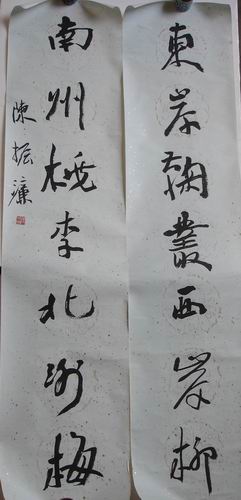 東岸鞠叢西岸柳
南州桃李北湖梅
陳振濂